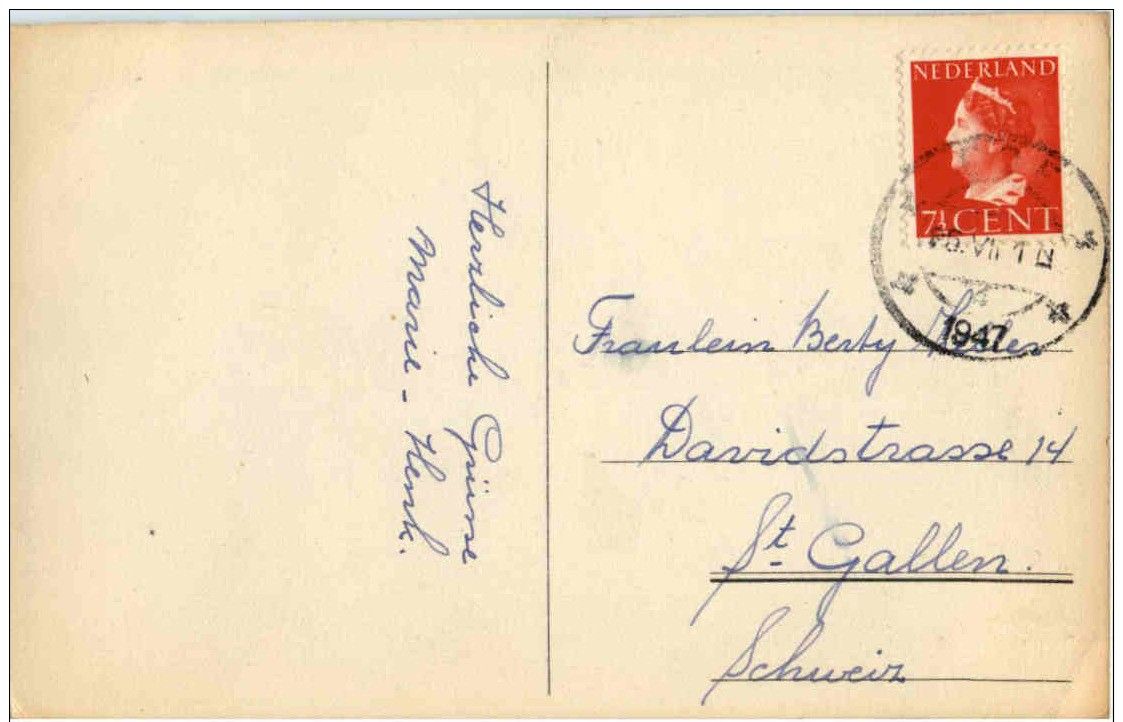 Herzliche Grüsse
Marie - Henk.
NEDERLAND
7½ CENT
1947
Fraulein Berty
Davidstrasse 14
St. Gallen.
Schweiz